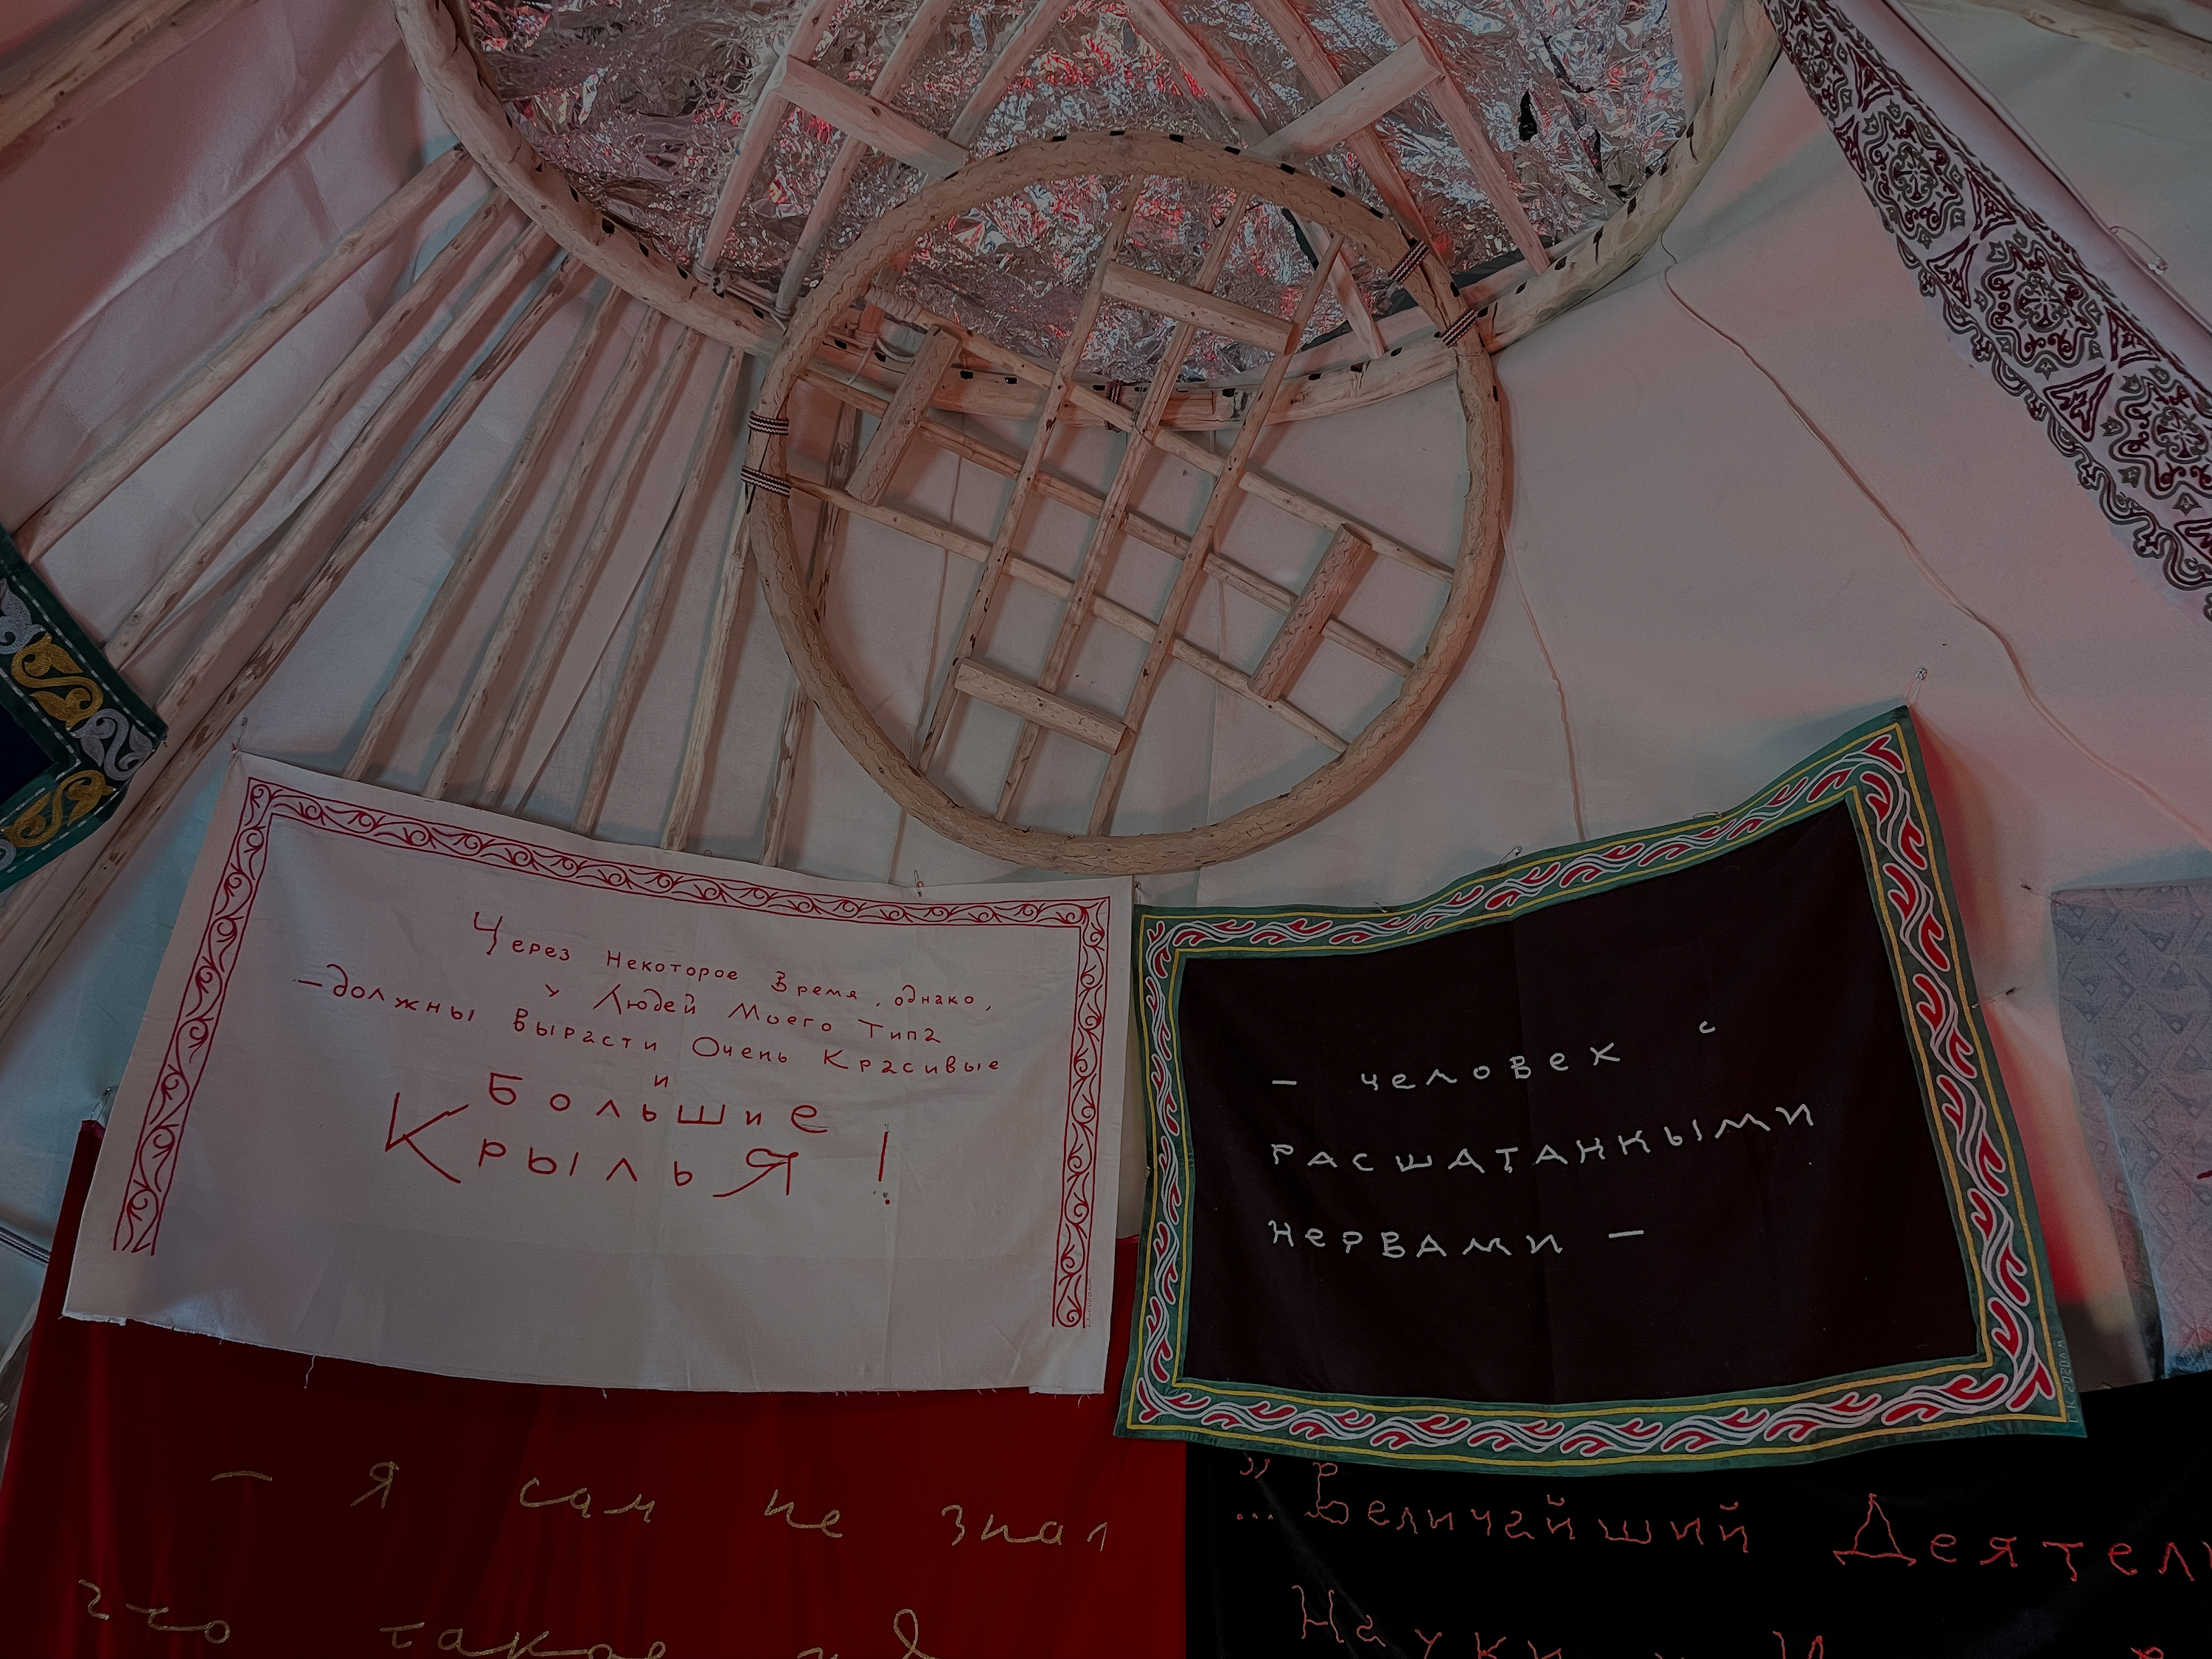 Через Некоторое Время, однако,
у Людей Моего Типа
– должны вырасти Очень Красивые
и
Большие
Крылья!
– человек с
РАСШАТАННЫМИ
НеРВАМИ –
– я сам не знал
что такое
„ ... Величайший Деятел
Науки и